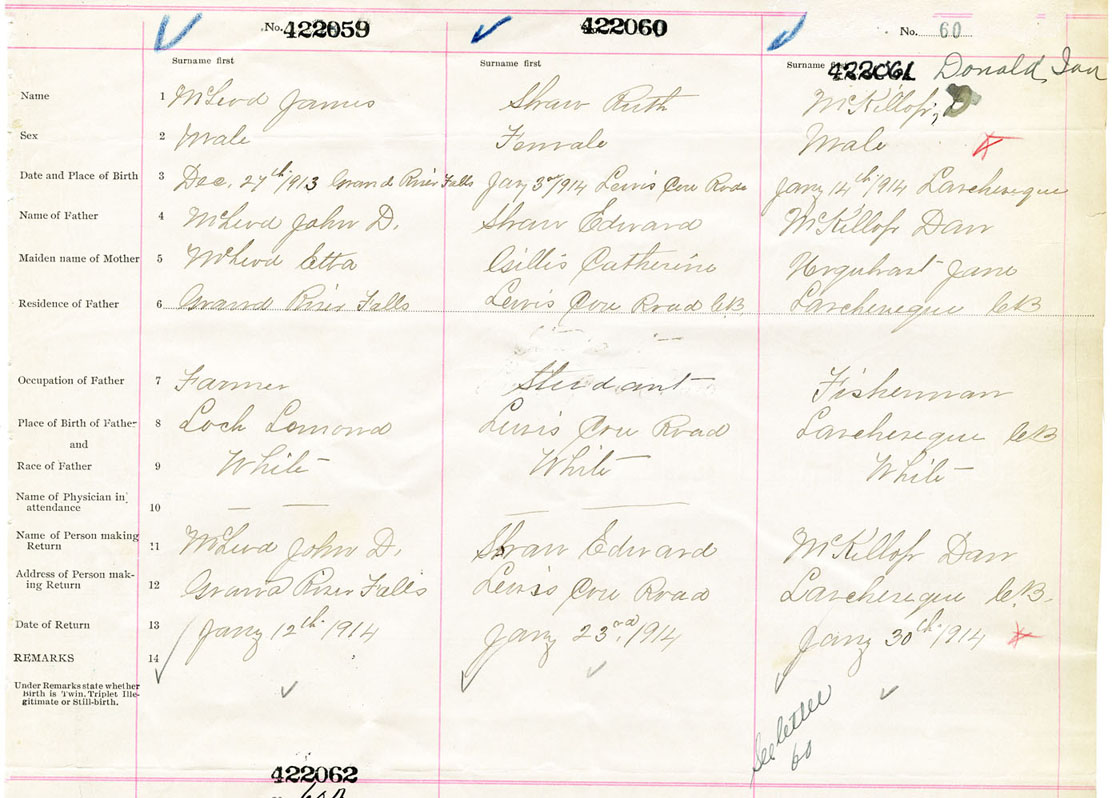 No. 422059 422060 No. 60
Surname first Surname first Surname first 422061 Donald, Ian
Name 1 McLeod James Shaw Ruth McKillop, D
Sex 2 Male Female Male
Date and Place of Birth 3 Dec. 27th/1913 Grand River Falls Jany 3rd/1914 Lewis Cove Road Jany 14th/1914 Larcheveque
Name of Father 4 McLeod John D. Shaw Edward McKillop Dan
Maiden name of Mother 5 McLeod Etta Gillis Catherine Urquhart Jane
Residence of Father 6 Grand River Falls Lewis Cove Road CB Larcheveque CB
Occupation of Father 7 Farmer Studant Fisherman
Place of Birth of Father 8 Loch Lomond Lewis Cove Road Larcheveque CB
and
Race of Father 9 White White White
Name of Physician in attendance 10 — — — —
Name of Person making Return 11 McLeod John D. Shaw Edward McKillop Dan
Address of Person making Return 12 Grand River Falls Lewis Cove Road Larcheveque C.B.
Date of Return 13 Jany 12th 1914 Jany 23rd, 1914 Jany 30th/1914
REMARKS 14
Under Remarks state whether
Birth is Twin. Triplet Ille-
gitimate or Still-birth.
See letter
60
422062